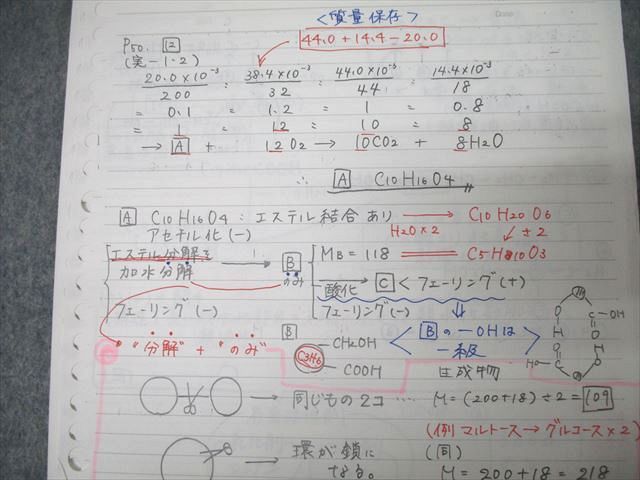 <質量保存>
44.0+14.4-20.0
P50. 12
(実-1・2)
20.0×10⁻³/200 : 38.4×10⁻³/32 : 44.0×10⁻³/44 : 14.4×10⁻³/18
= 0.1 : 1.2 : 1 : 0.8
= 1 : 12 : 10 : 8
→ A + 12O2 → 10CO2 + 8H2O
∴ A C10H16O4
A C10H16O4 : エステル結合あり → C10H20O6
アセチル化(-) H2O×2 ↓ ±2
エステル分解を → B MB=118 = C5H10O3
加水分解 のみ
酸化→ C < フェーリング(+)
フェーリング(-) フェーリング(-)
"分解" + "のみ" B CH2OH <Bの-OHは
C3H6 一級
COOH 生成物
同じもの2コ … M=(200+18)÷2=109
(例 マルトース→グルコース×2)
環が鎖に (同)
なる。 M=200+18=218